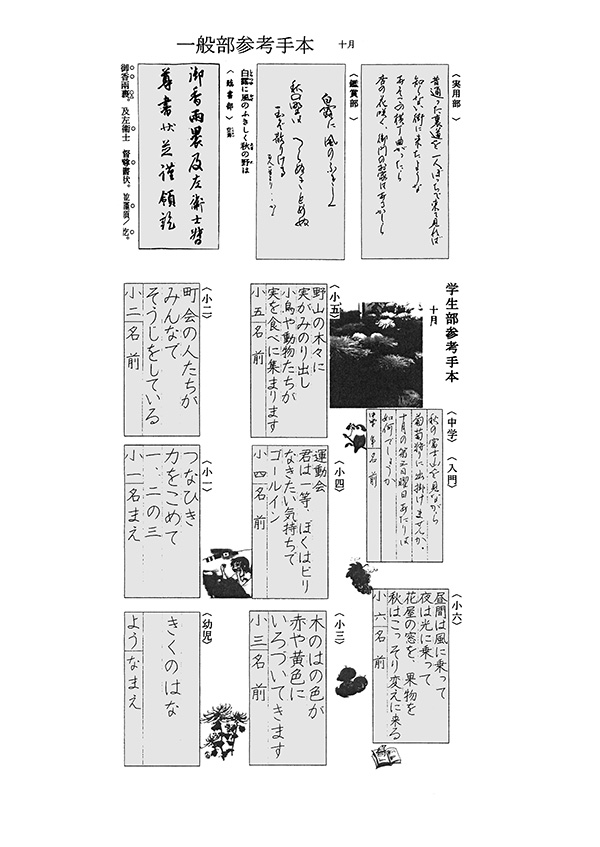 一般部参考手本 十月
〈実用部〉
昔通った裏道を一人ぼっちで来て見れば
知らない街に来たような
あそこの横丁曲がったら
杏の花咲く、御門のお家はあるかしら
〈鑑賞部〉
白露に風のふきしく
秋の野はつらぬきとめぬ
玉ぞ散りける
白露に風のふきしく秋の野は
〈臨書部〉
御香両裹及左衛士督
尊書状並謹領訖
御香両裹。及左衛士 督尊書状。並謹領/訖。
学生部参考手本
十月
〈中学〉〈入門〉
秋の富士山を見ながら
葡萄狩に出掛けませんか。
十月の第二日曜日あたりは
如何でしょうか
名前
〈小六〉
昼間は風に乗って
夜は光に乗って
花屋の窓を、果物を
秋はこっそり変えに来る
小六名前
〈小五〉
野山の木々に
実がみのり出し
小鳥や動物たちが
実を食べに集まります
小五名前
〈小四〉
運動会
君は一等、ぼくはビリ
なきたい気持ちで
ゴールイン
小四名前
〈小三〉
木のはの色が
赤や黄色に
いろづいてきます
小三名前
〈小二〉
町会の人たちが
みんなで
そうじをしている
小二名前
〈小一〉
つなひき
力をこめて
一、二の三
小一名まえ
〈幼児〉
きくのはな
ようなまえ